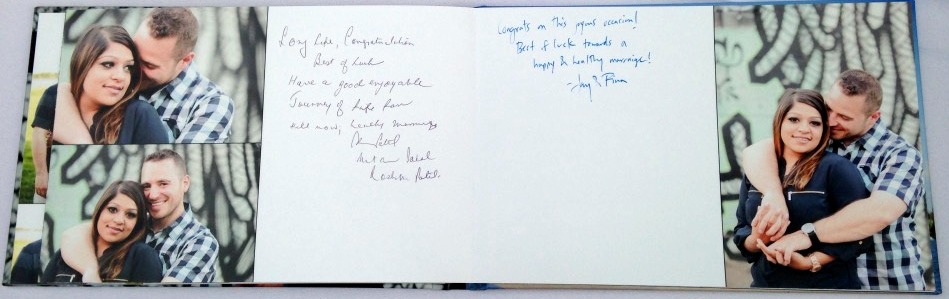 Long Life, Congratulation
Best of Luck
Have a good enjoyable
Journey of Life from
till now,
Patel
Patel
Congrats on this joyous occasion!
Best of luck towards a
happy & healthy marriage!